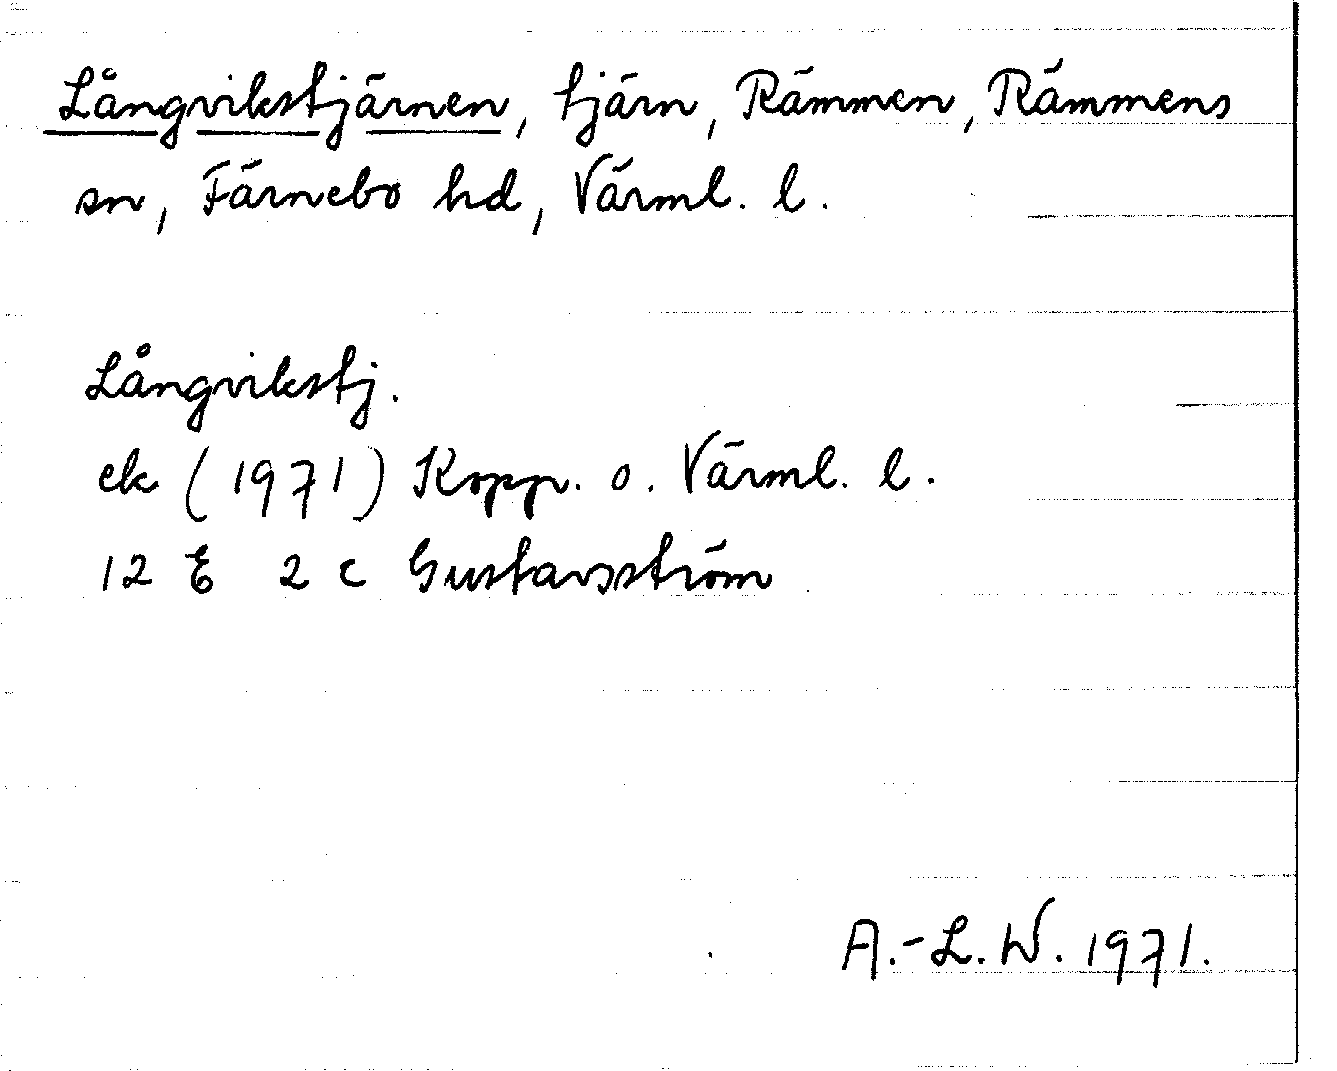 Långvikstjärnen, tjärn, Rämmen, Rämmens
sn, Färnebo hd, Värml. l.
Långvikstj.
ek (1971) Kopp. o. Värml. l.
12 E 2 c Gustavsström
A.-L. W. 1971.